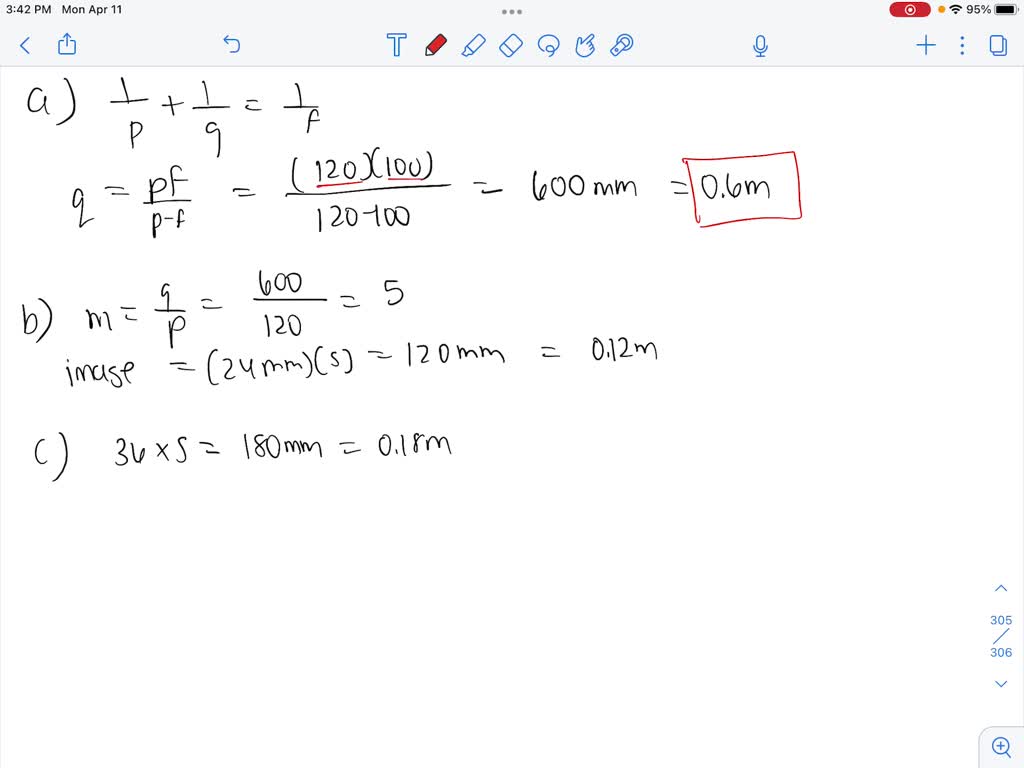 3:42 PM Mon Apr 11
95%
T
a) 1/p + 1/q = 1/f
q = pf/p-f = (120)(100)/120-100 = 600 mm = 0.6m
b) m = q/p = 600/120 = 5
image = (24mm)(5) = 120mm = 0.12m
c) 36 x 5 = 180mm = 0.18m
305
306